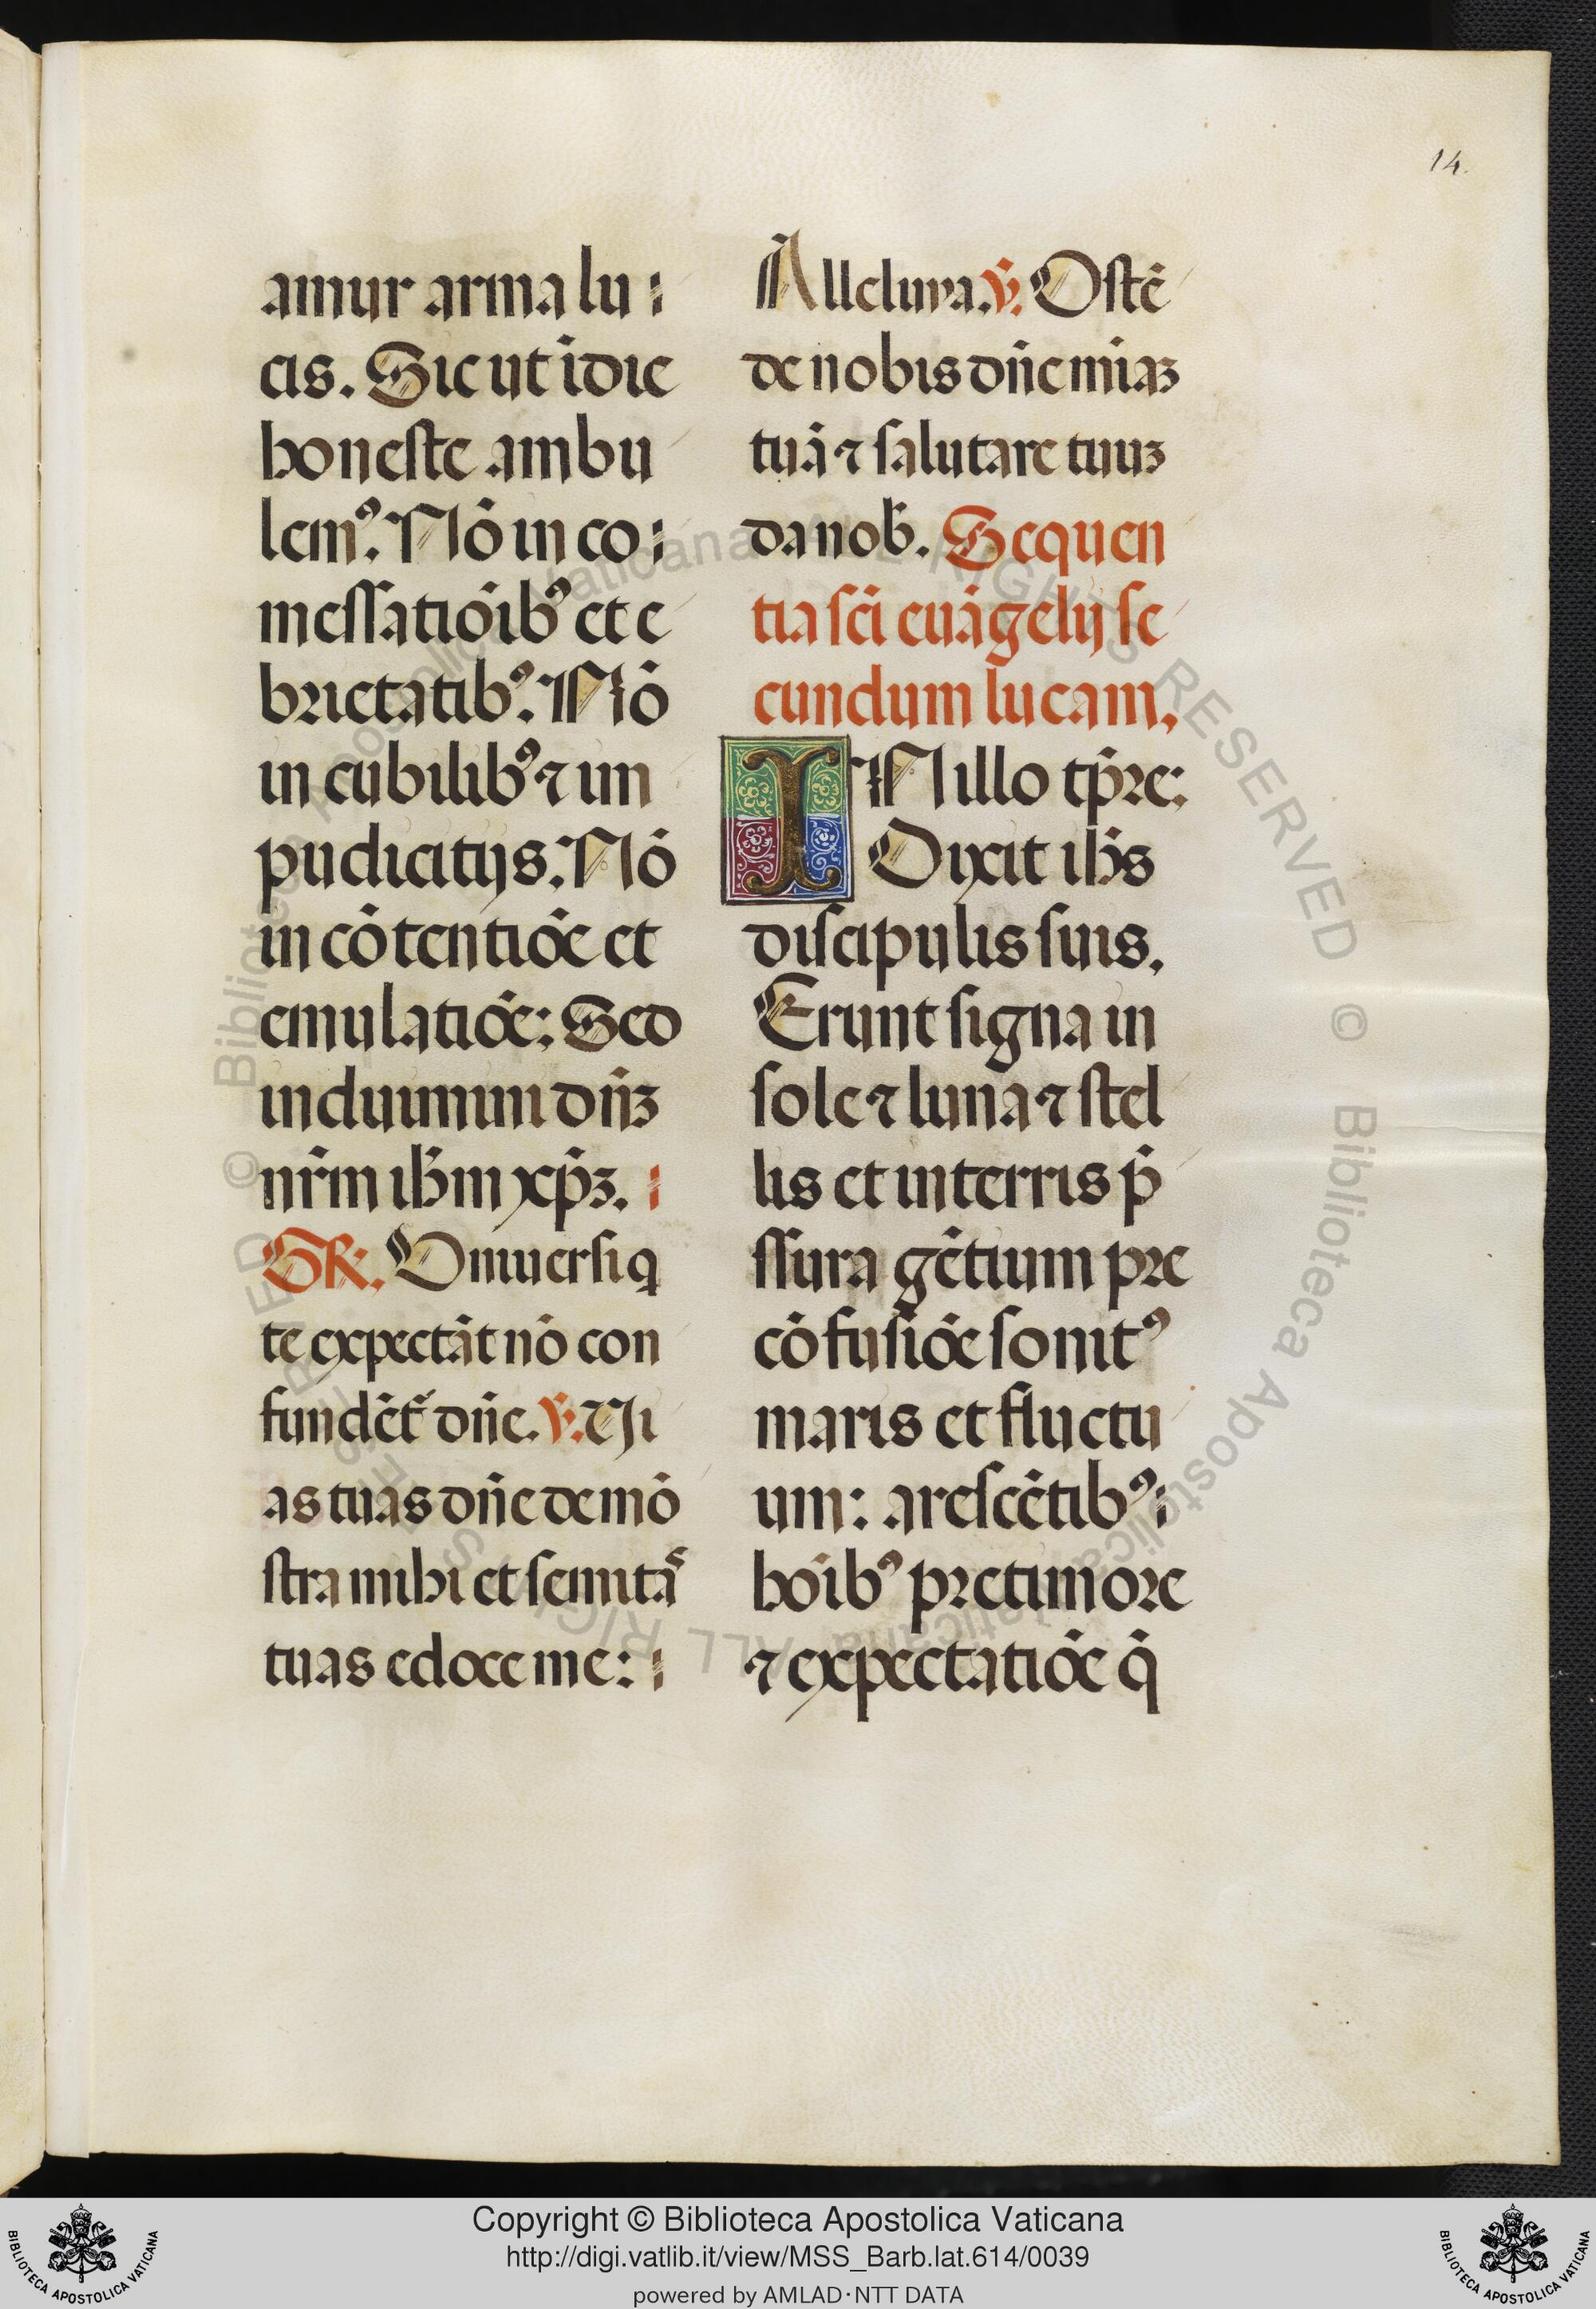 14.
amur arma lu
cis. Sicut ĩ die
honeste ambu
lemꝰ. Nõ in co
messatiõibꝰ et e
brietatibꝰ. Nõ
in cubilibꝰ ⁊ im
pudicitijs. Nõ
in cõtentiõe et
emulatiõe: Sed
induimini dñꝫ
nr̃m ihm̃ xp̃ꝫ.
GR. Vniuersi q
te expectãt nõ con
fundẽt᷑ dñe. ℣. Vi
as tuas dñe demõ
stra mihi et semitaˢ
tuas edoce me:
Alleluya. ℣. Ostẽ
de nobis dñe miãꝫ
tuã ⁊ salutare tuuꝫ
da nob̃. Sequen
tia sc̃i euãgelij se
cundum lucam.
IN illo tp̃re:
Dixit ihs̃
discipulis suis.
Erunt signa in
sole ⁊ luna ⁊ stel
lis et in terris p̃
ssura gẽtium pre
cõfusiõe sonitꝰ
maris et fluctu
um: arescẽtibꝰ
hõibꝰ pre timore
⁊ expectatiõe q̃
© Biblioteca Apostolica Vaticana ALL RIGHTS RESERVED
© Biblioteca Apostolica Vaticana ALL RIGHTS RESERVED
Copyright © Biblioteca Apostolica Vaticana
http://digi.vatlib.it/view/MSS_Barb.lat.614/0039
powered by AMLAD·NTT DATA
BIBLIOTECA APOSTOLICA VATICANA
BIBLIOTECA APOSTOLICA VATICANA